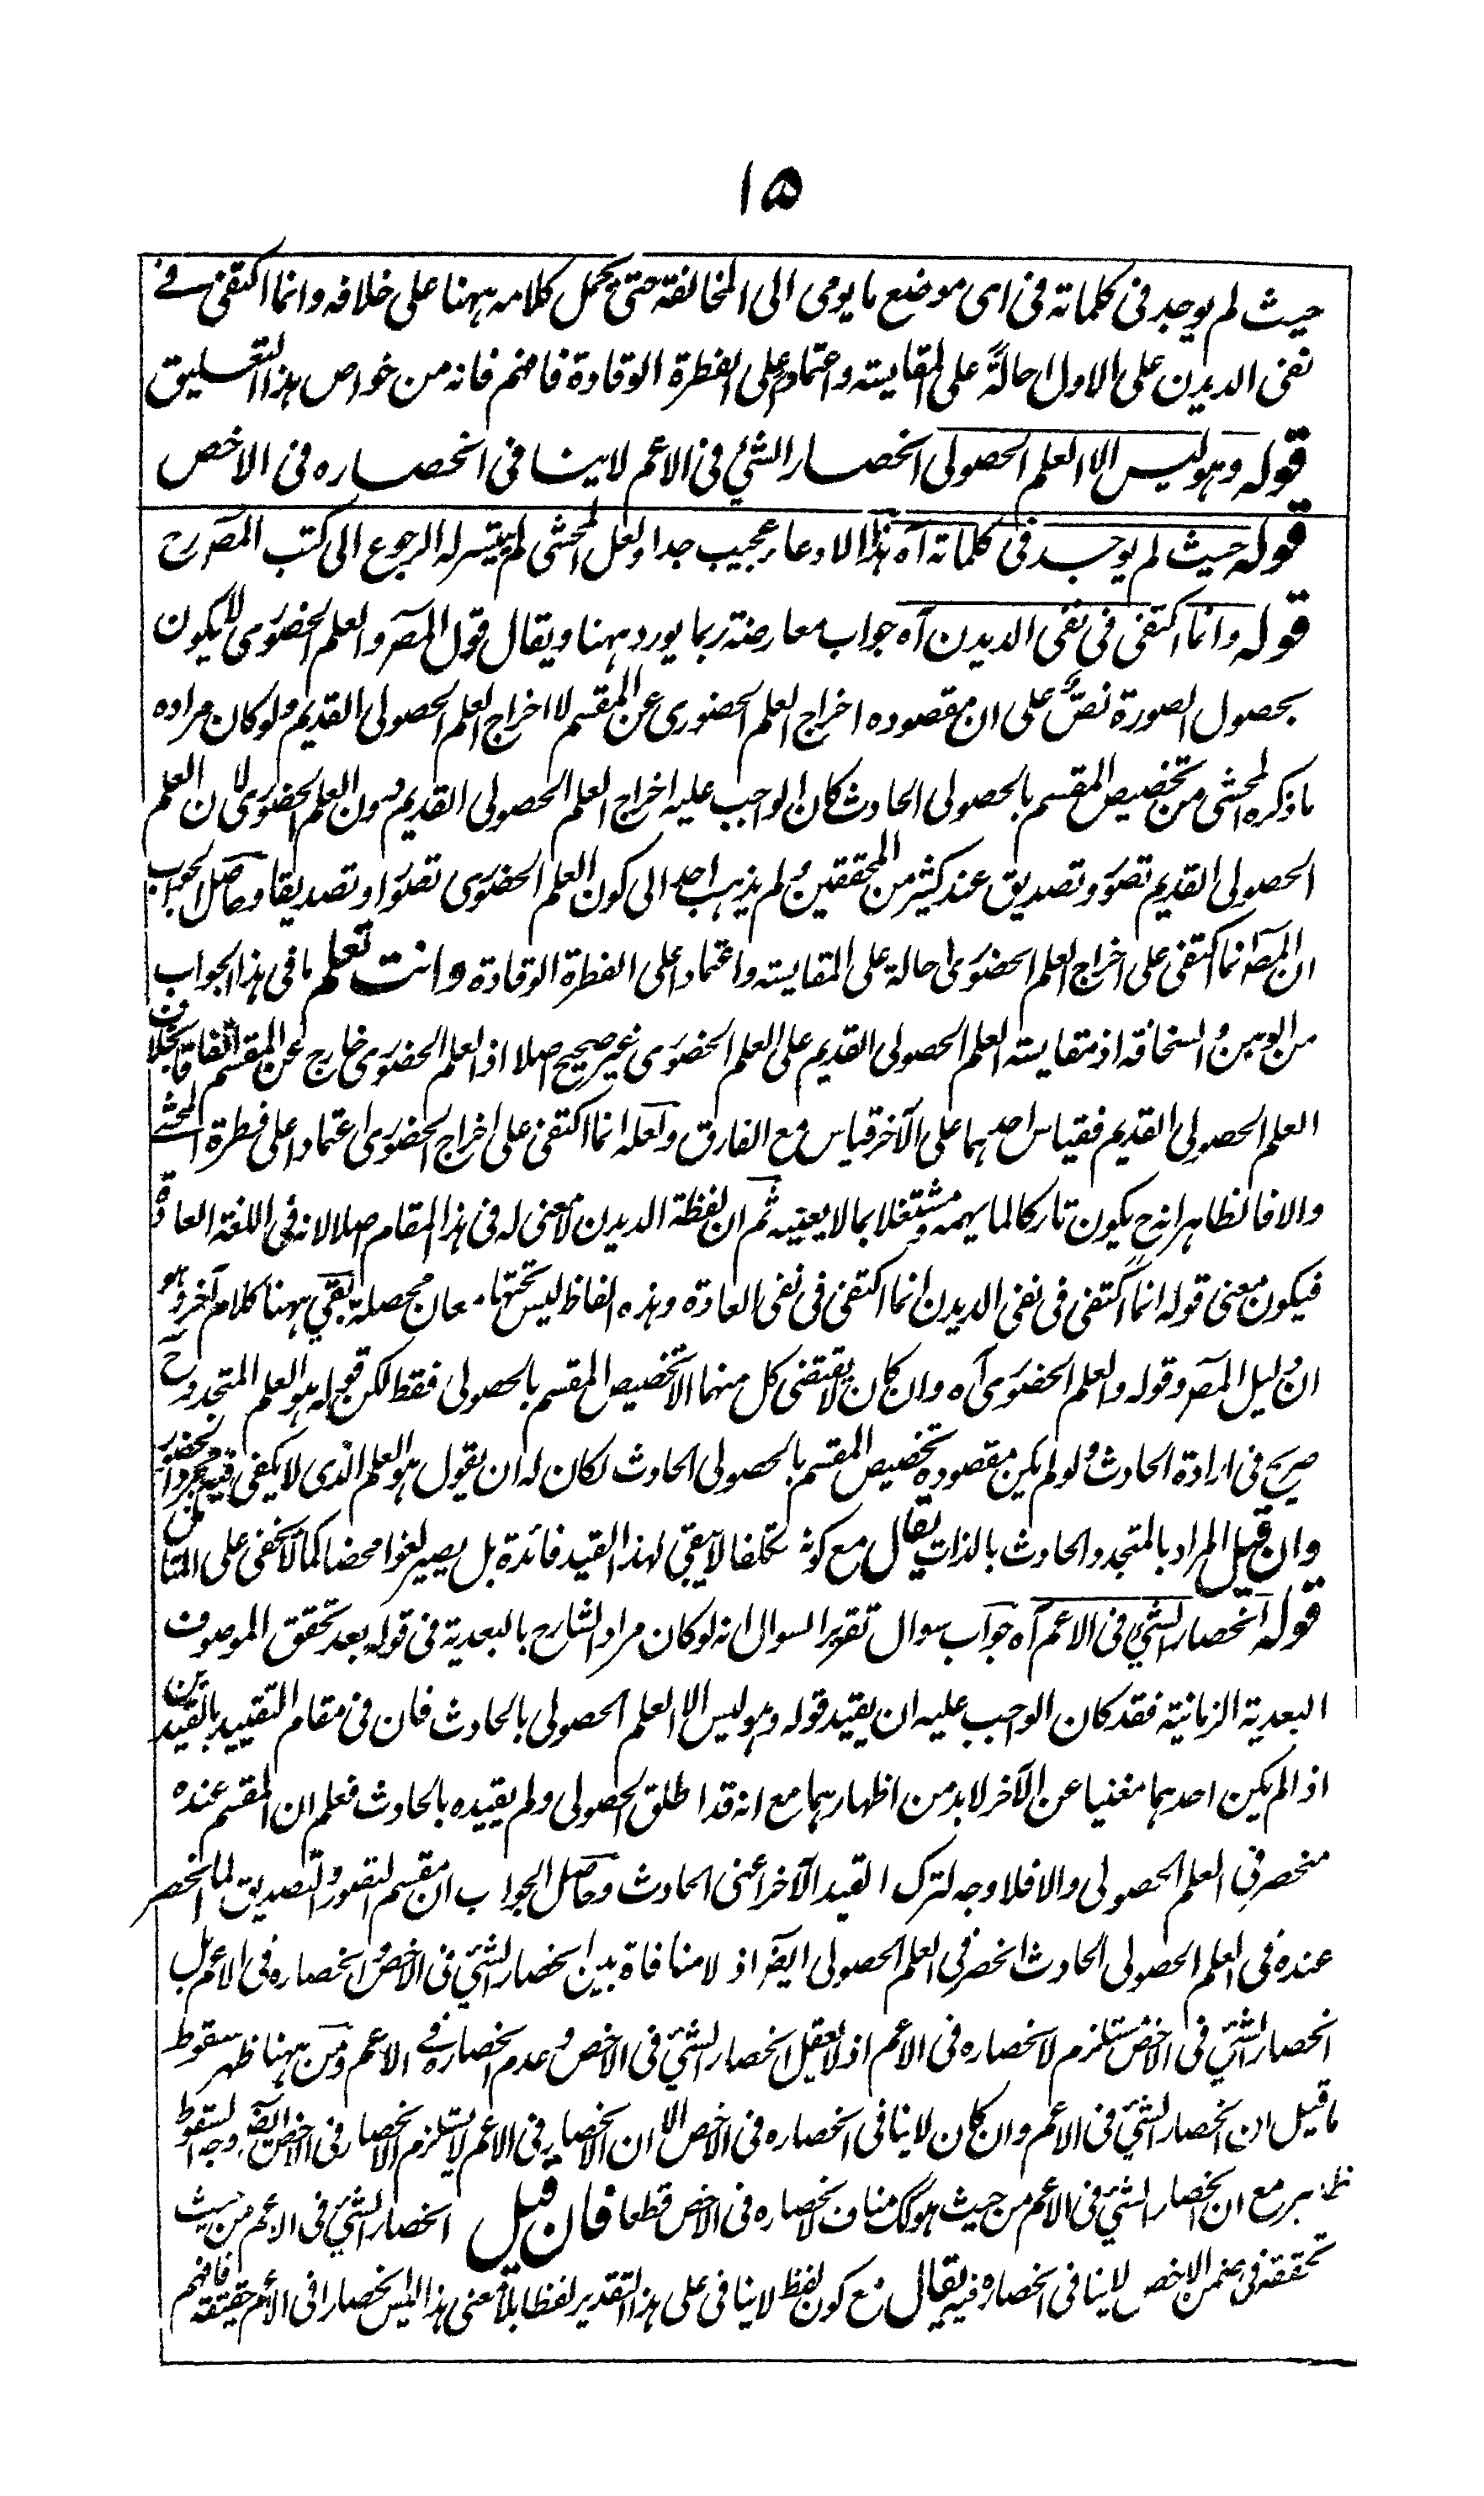 ۱۵
حيث لم يوجد فى كلماته فى اى موضع ما يومى الى المخالفة حتى يحمل كلامه ههنا على خلافه وانما اكتفى فى
نفى الديدن على الاول احالةً على المقايسة واعتمادا على الفطرة الوقادة فافهم فانه من خواص هذا التعليق
قوله وهو ليس الا العلم الحصولى انحصار الشئ فى الاعم لا ينافى انحصاره فى الاخص
قوله حيث لم يوجد فى كلماته آه هذا الادعاء عجيب جدا ولعل المحشى لم يتيسر له الرجوع الى كتب المصرح
قوله وانما اكتفى فى نفى الديدن آه جواب معارضة ربما يورد ههنا ويقال قول المصر والعلم الحضورى لا يكون
بحصول الصورة نصٌ على ان مقصوده اخراج العلم الحضورى عن المقسم لا اخراج العلم الحصولى القديم ولو كان مراده
ما ذكره المحشى من تخصيص المقسم بالحصولى الحادث كان الواجب عليه اخراج العلم الحصولى القديم دون العلم الحضورى لان العلم
الحصولى القديم تصور وتصديق عند كثير من المحققين ولم يذهب احد الى كون العلم الحضورى تصورا وتصديقا وحاصل الجواب
ان المصر انما اكتفى على اخراج العلم الحضورى احالة على المقايسة واعتمادا على الفطرة الوقادة وانت تعلم ما فى هذا الجواب
من الوهن والسخافة اذ مقايسة العلم الحصولى القديم على العلم الحضورى غير صحيح اصلا اذ العلم الحضورى خارج عن المقسم اتفاقا بخلاف
العلم الحصولى القديم فقياس احدهما على الآخر قياس مع الفارق ولعله انما اكتفى على اخراج الحضورى اعتمادا على فطرة المحشى
والا فالظاهر انه ح يكون تاركا لما يهمه ومشتغلا بما لا يعنيه ثم ان لفظة الديدن لا معنى له فى هذا المقام اصلا لانه فى اللغة العادة
فيكون معنى قوله انما اكتفى فى نفى الديدن انما اكتفى فى نفى العادة وهذه الفاظ ليس تحتها معان محصلة بقى ههنا كلام آخر وهو
ان دليل المصر وقوله والعلم الحضورى آه وان كان لا يقتضى كل منهما الا تخصيص المقسم بالحصولى فقط لكن قوله هو العلم المتجدد ح
صريح فى ارادة الحادث ولو لم يكن مقصوده تخصيص المقسم بالحصولى الحادث لكان له ان يقول هو العلم الذى لا يكفى فيه مجرد الحضور
وان قيل المراد بالمتجدد الحادث بالذات يقال مع كونه تكلفا لا يبقى لهذا القيد فائدة بل يصير لغوا محضا كما لا يخفى على المتامل
قوله انحصار الشئ فى الاعم آه جواب سوال تقرير السوال انه لو كان مراد الشارح بالبعدية فى قوله بعد تحقق الموصوف
البعدية الزمانية فقد كان الواجب عليه ان يقيد قوله وهو ليس الا العلم الحصولى بالحادث فان فى مقام التقييد بالقيدين
اذا لم يكن احدهما مغنيا عن الآخر لا بد من اظهارهما مع انه قد اطلق الحصولى ولم يقيده بالحادث فعلم ان المقسم عنده
منحصر فى العلم الحصولى والا فلا وجه لترك القيد الآخر اعنى الحادث وحاصل الجواب ان مقسم التصور والتصديق لما انحصر
عنده فى العلم الحصولى الحادث انحصر فى العلم الحصولى ايضا اذ لا منافاة بين انحصار الشئ فى الاخص وانحصاره فى الاعم بل
انحصار الشئ فى الاخص مستلزم لانحصاره فى الاعم اذ لا يعقل انحصار الشئ فى الاخص وعدم انحصاره فى الاعم ومن ههنا ظهر سقوط
ما قيل ان انحصار الشئ فى الاعم وان كان لا ينافى انحصاره فى الاخص الا ان الانحصار فى الاعم لا يستلزم الانحصار فى الاخص ايضا وجه السقوط
ظاهر مع ان انحصار الشئ فى الاعم من حيث هو كك مناف لانحصاره فى الاخص قطعا فان قيل انحصار الشئ فى الاعم من حيث
تحققه فى ضمن الاخص لا ينافى انحصاره فيه يقال مع كون لفظ لا ينافى على هذا التقدير لفظا بلا معنى هذا ليس انحصارا فى الاعم حقيقة فافهم